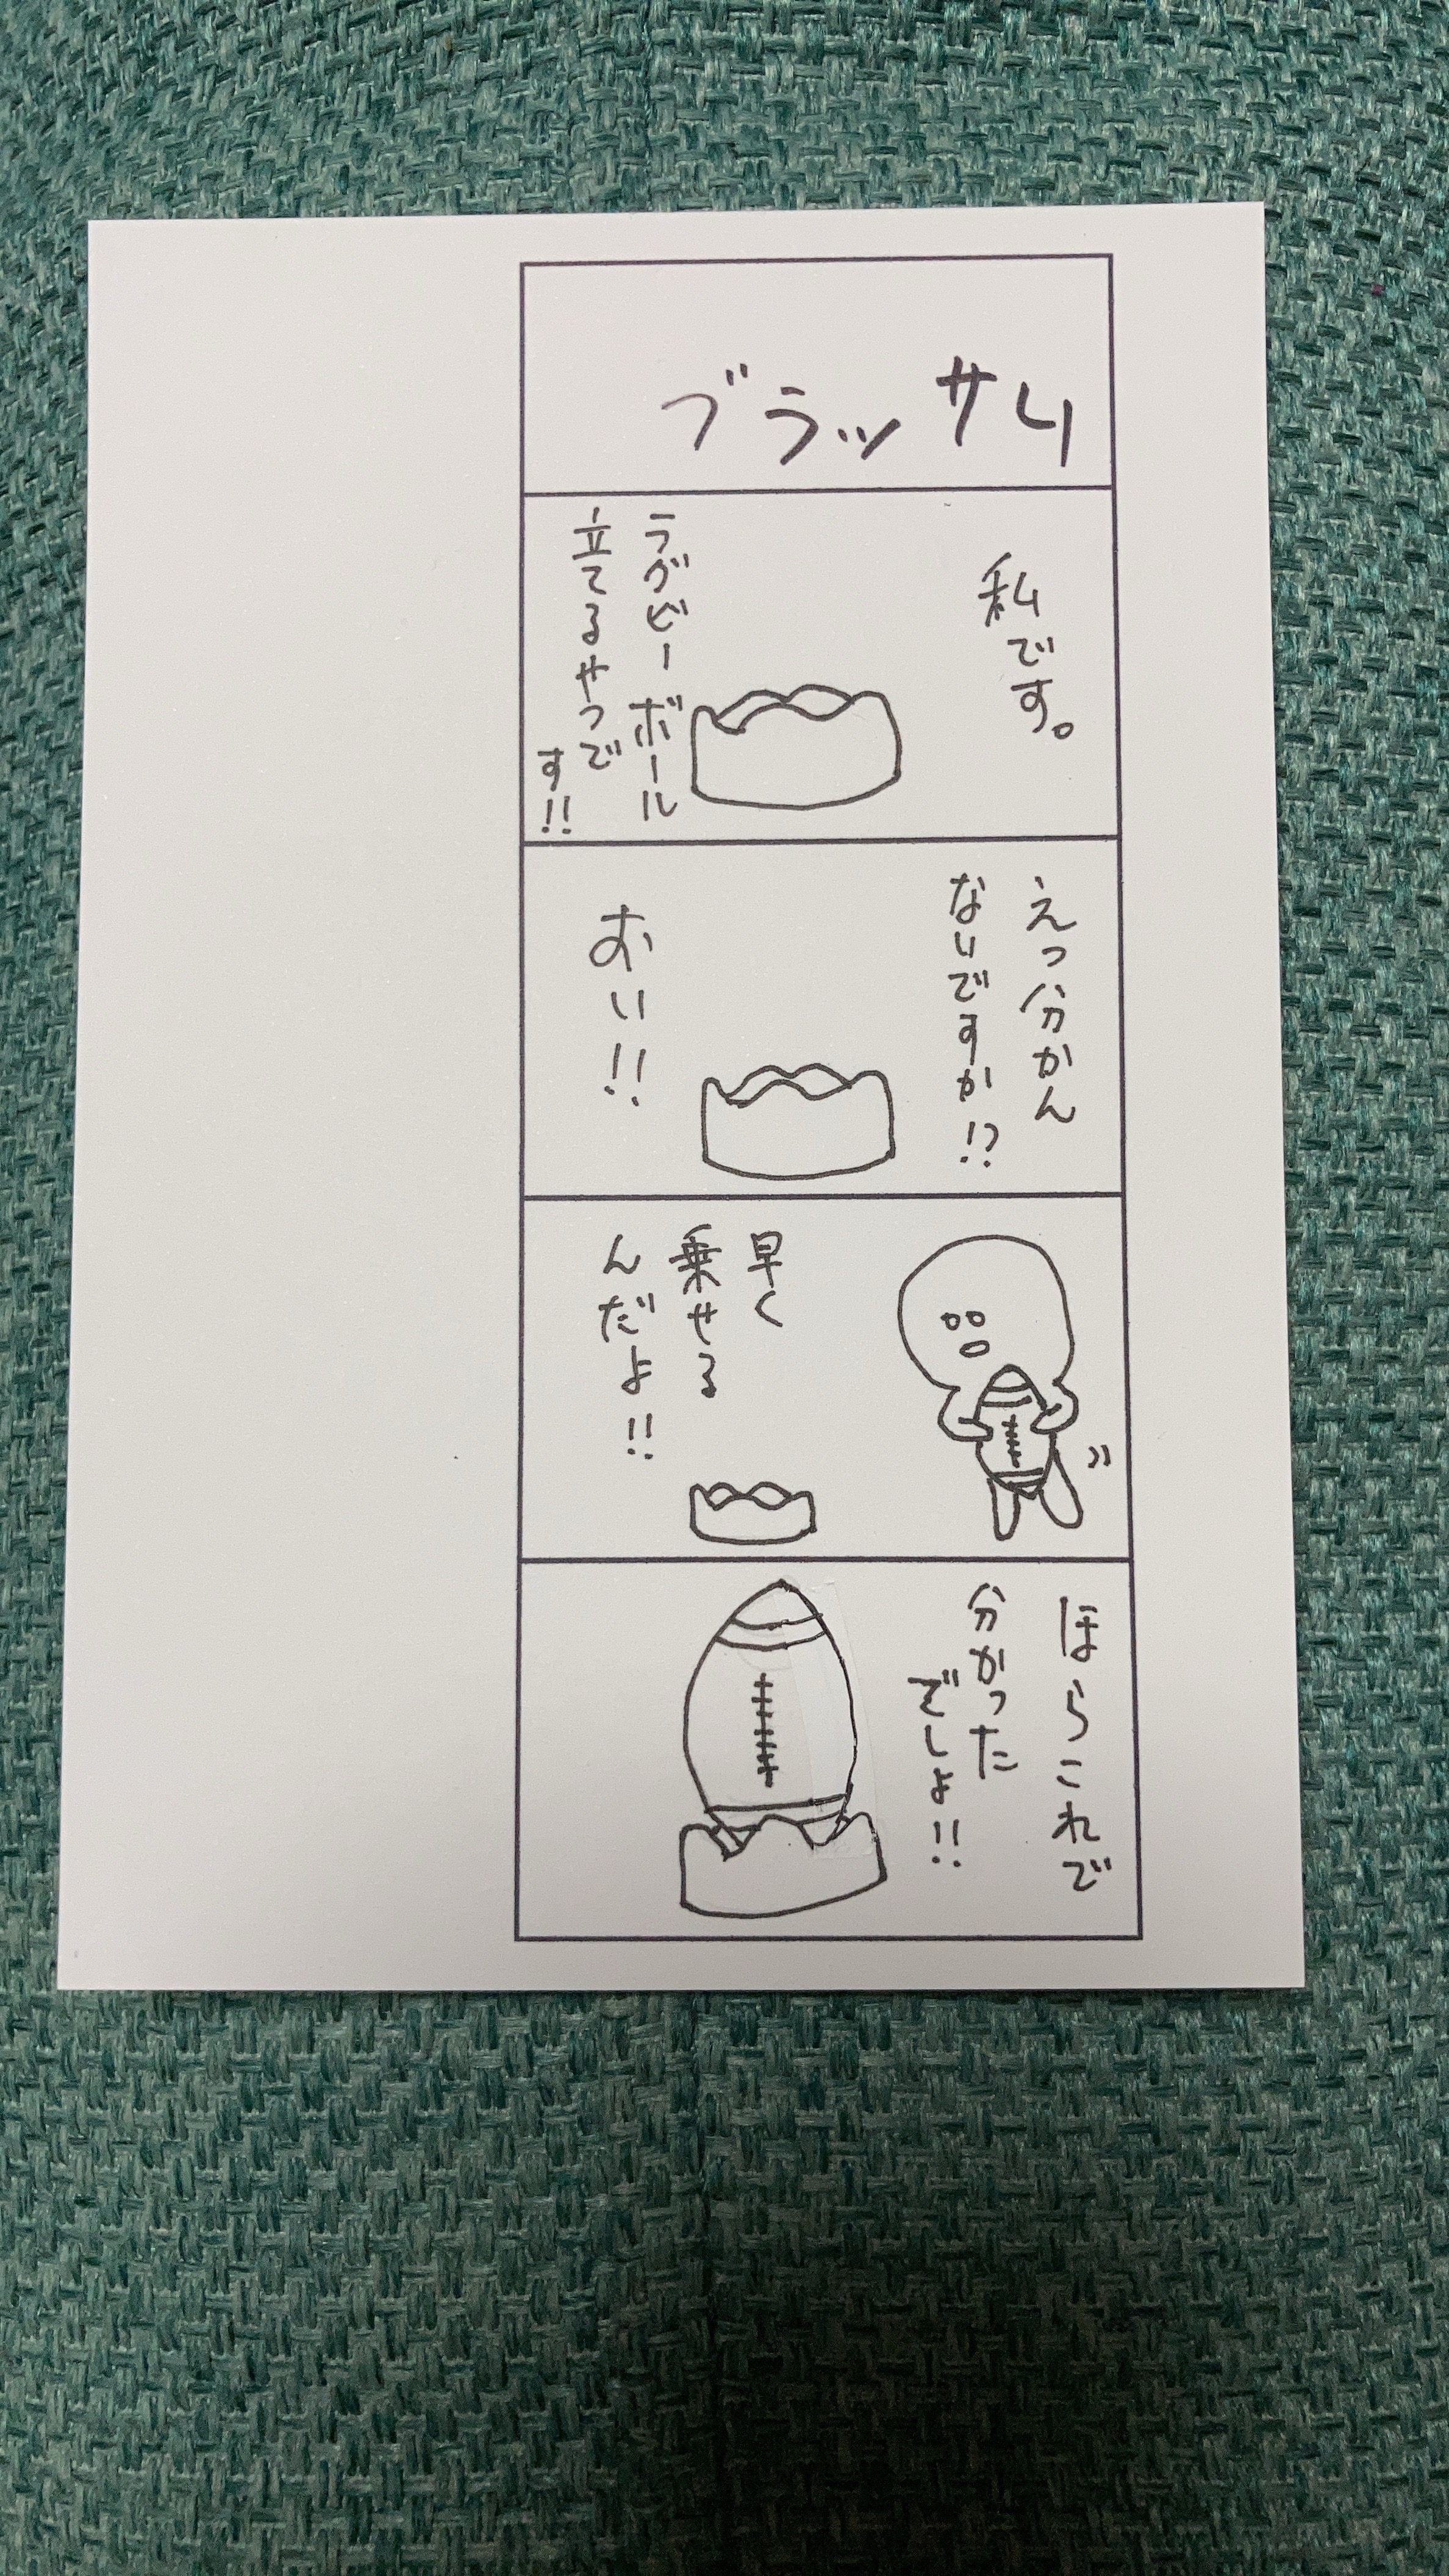 ブラッサム
私です。
ラグビーボール
立てるやつで
す!!
えっ分かん
ないですか!?
おい!!
早く
乗せる
んだよ!!
ほらこれで
分かった
でしょ!!